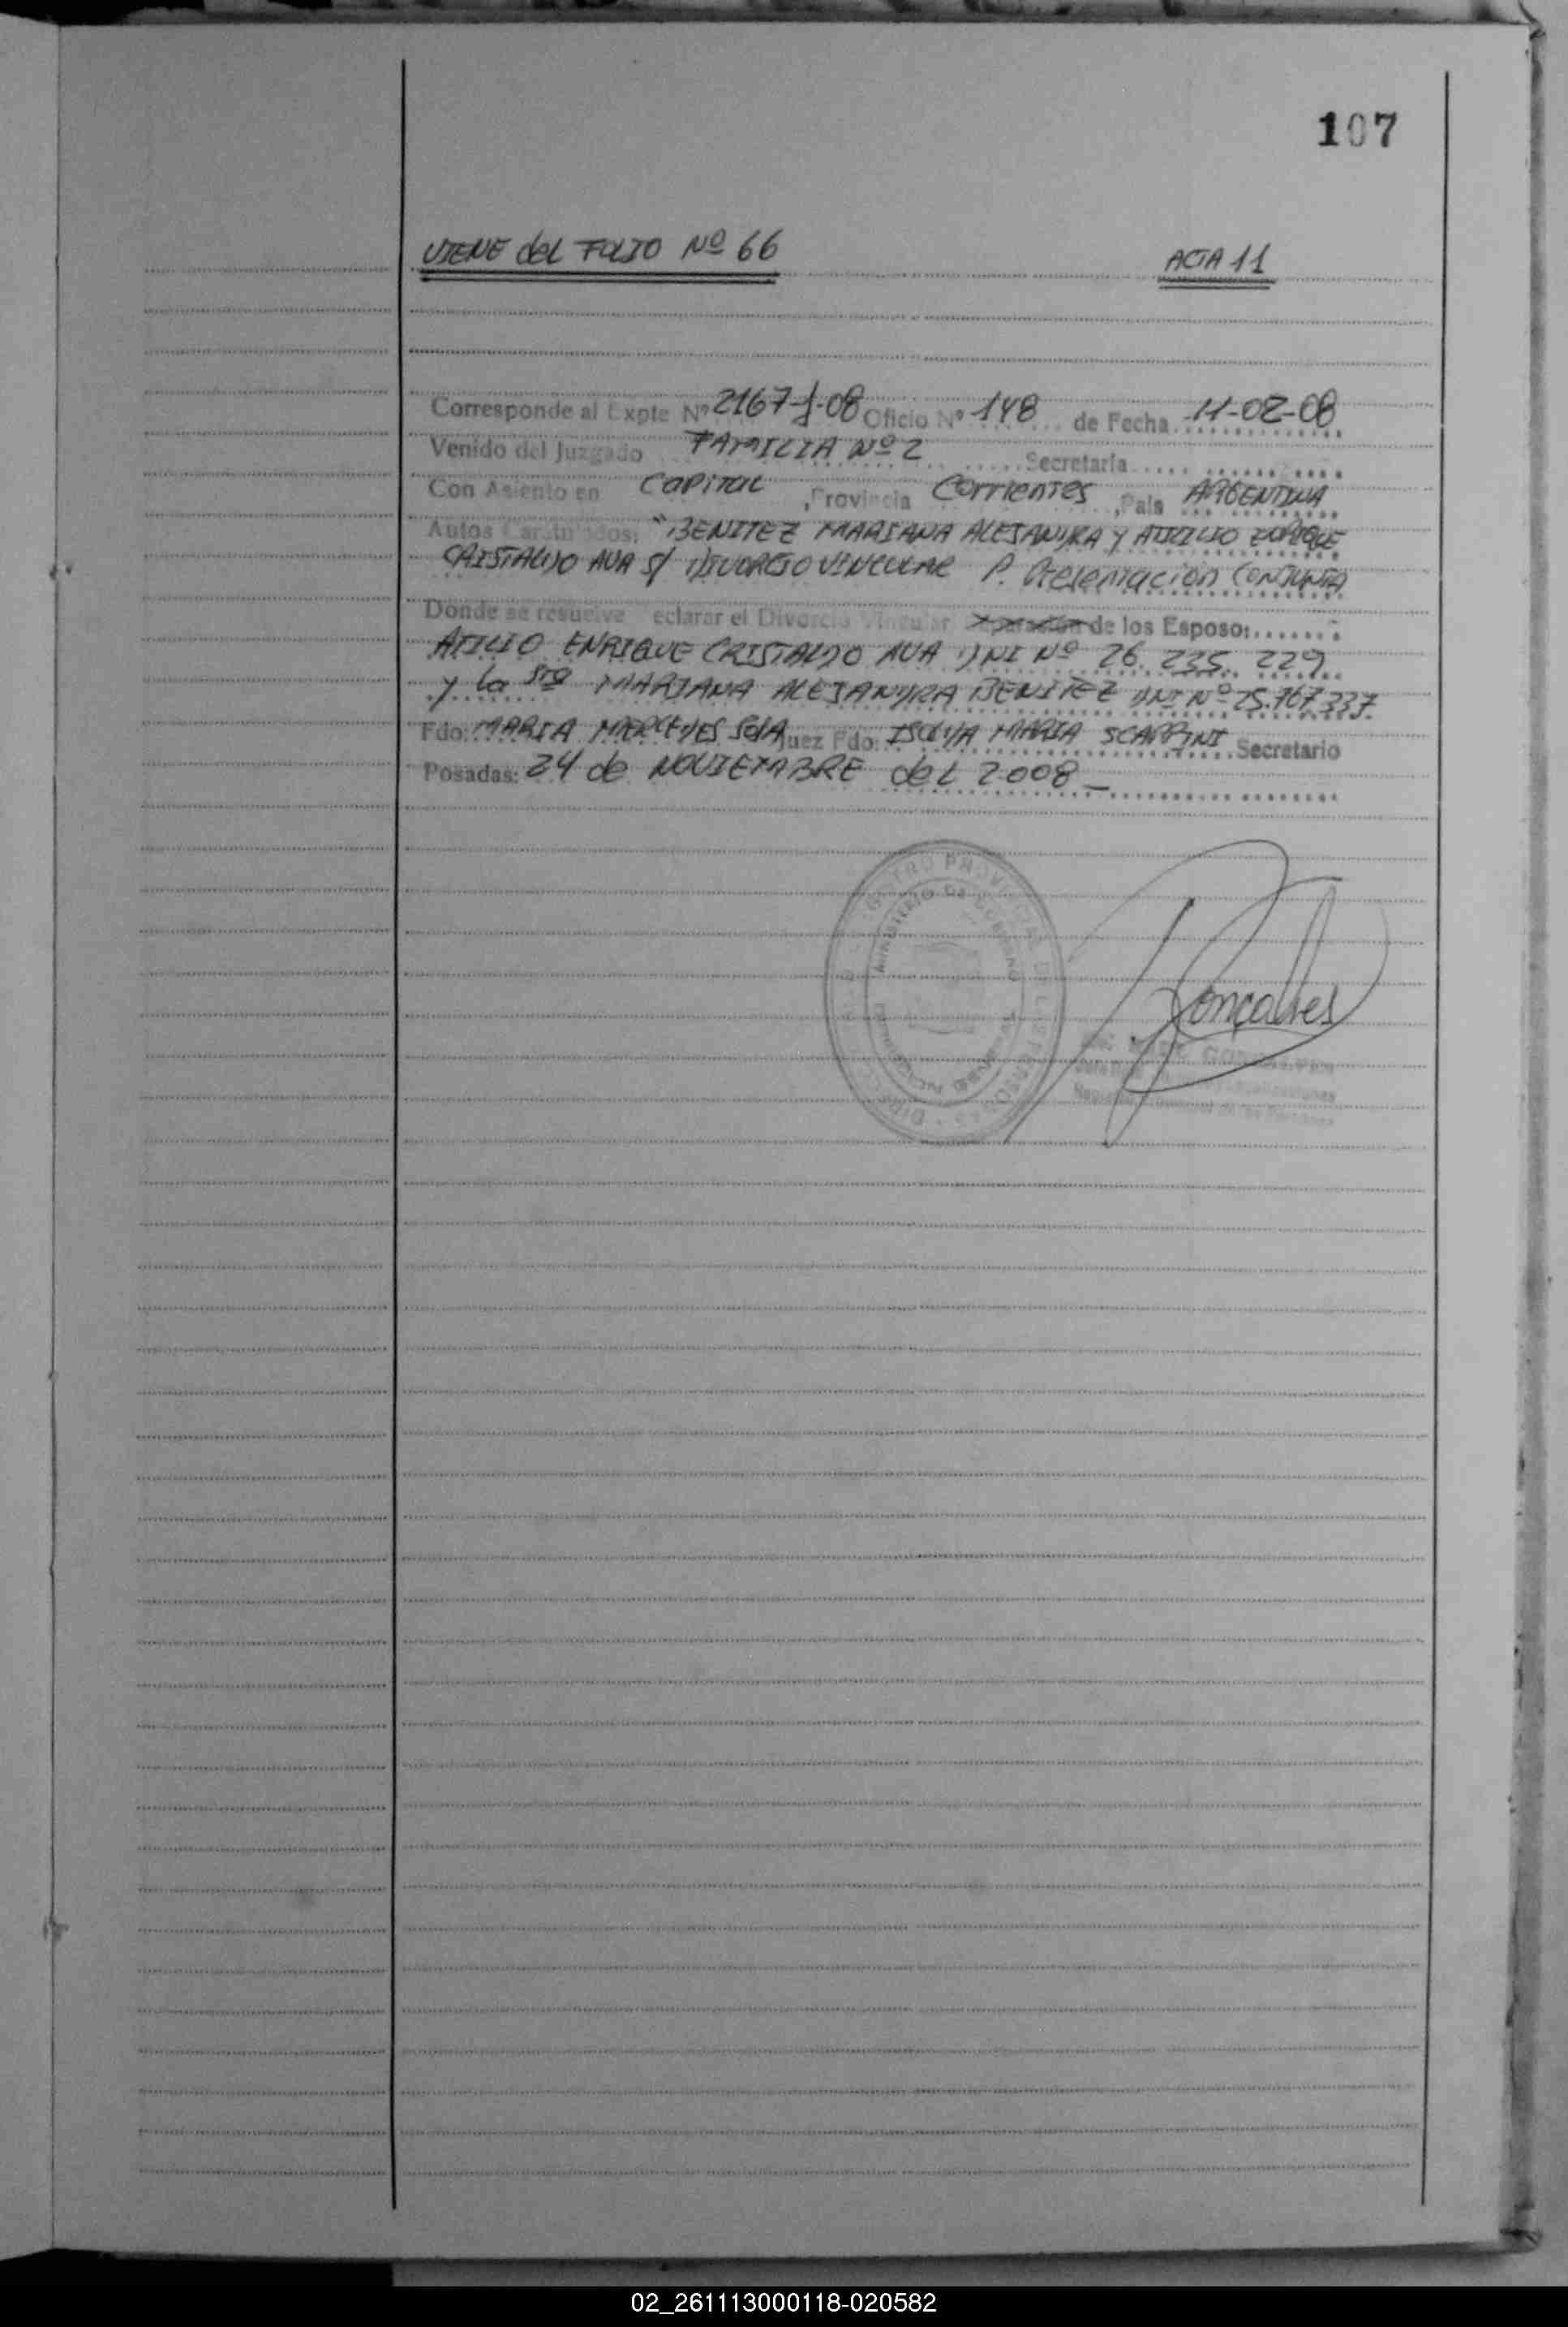 107
VIENE del FOLIO Nº 66 ACTA 11
Corresponde al Expte Nº 2167-J-08 Oficio Nº 148 de Fecha 11-02-08
Venido del Juzgado FAMILIA Nº 2 Secretaría
Con Asiento en CAPITAL, Provincia Corrientes, País ARGENTINA
Autos Caratulados: "BENITEZ MARIANA ALEJANDRA Y ATILIO ENRIQUE
CRISTALDO AVA S/ DIVORCIO VINCULAR P. Presentación CONJUNTA
Donde se resuelve eclarar el Divorcio Vincular Separación de los Esposo:
ATILIO ENRIQUE CRISTALDO AVA DNI Nº 26.235.229
y la Sra MARIANA ALEJANDRA BENITEZ DNI Nº 25.767.337
Fdo: MARIA MERCEDES SOSA Juez Fdo: ISOLDA MARIA SCARPINI Secretario
Posadas: 24 de NOVIEMBRE del 2008_
Goncalves
02_261113000118-020582